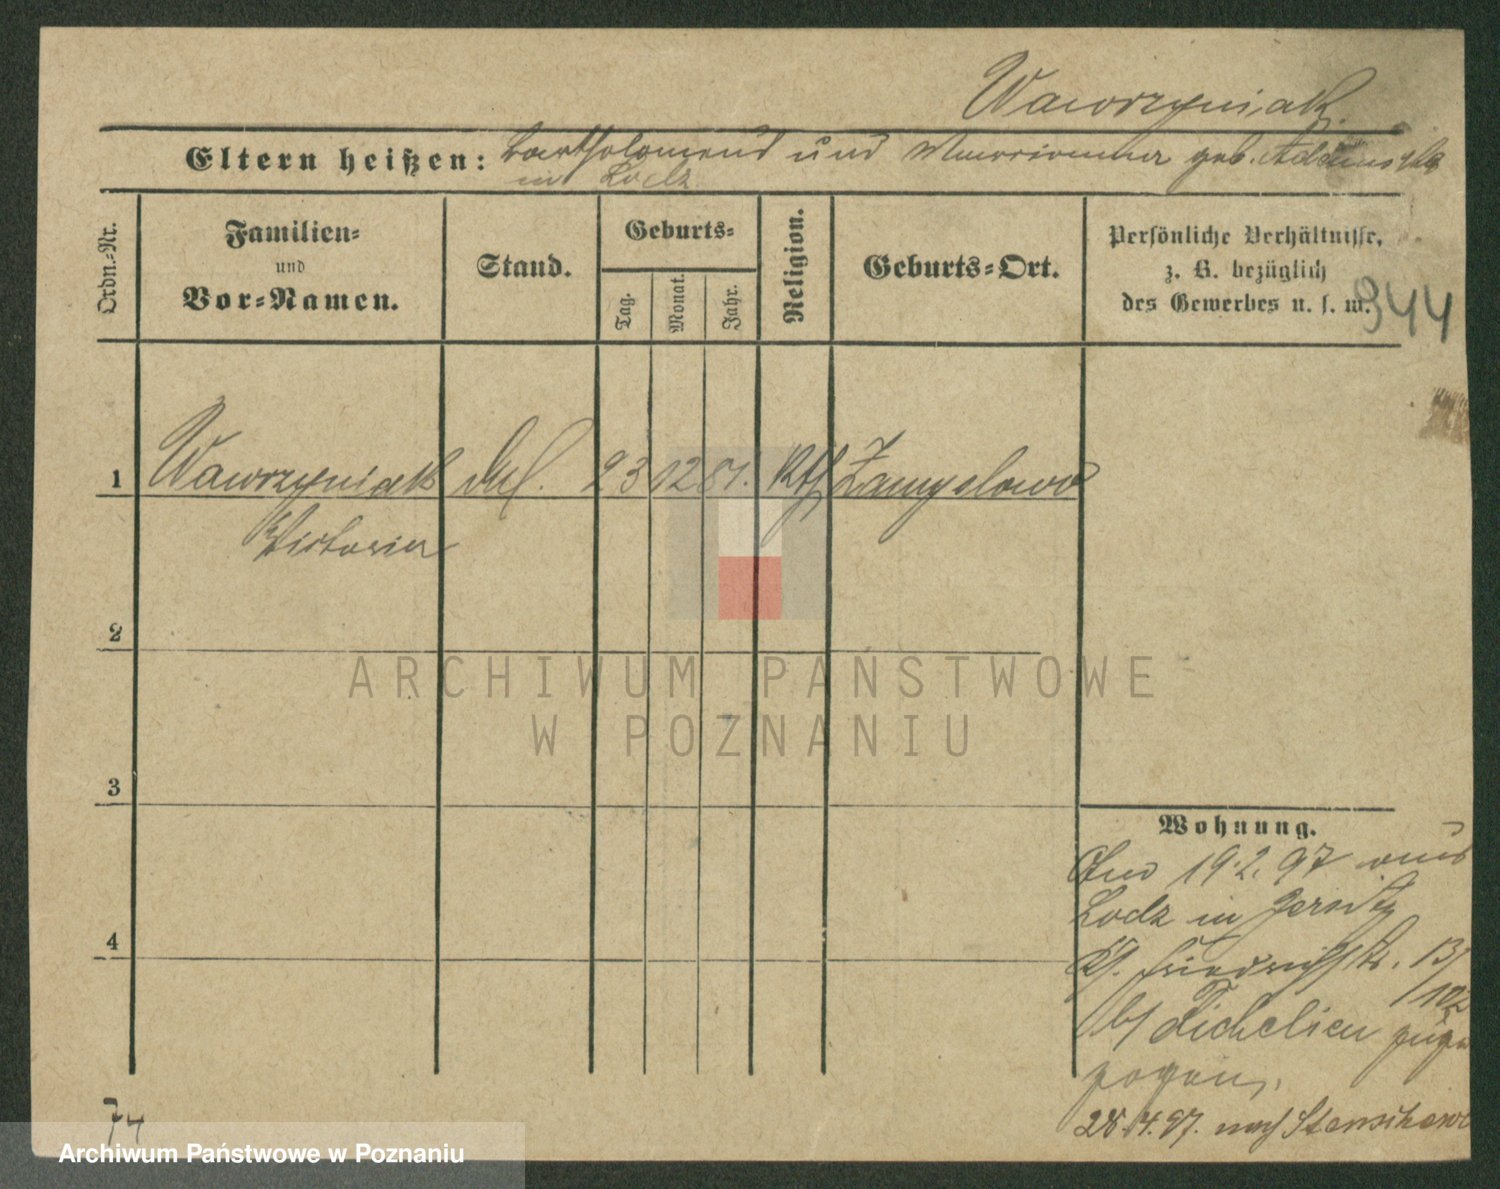 Wawrzyniak.
Eltern heißen: Bartholomeus und Marianna geb. Adamska
in Lodz
Ordn.-Nr.
Familien-
und
Vor-Namen.
Stand.
Geburts-
Tag.
Monat.
Jahr.
Religion.
Geburts-Ort.
Persönliche Verhältnisse,
z. B. bezüglich
des Gewerbes u. s. w.
944
1 Wawrzyniak 23 12 81. Kth Zamyslowo
Victoria
2
3
4
Wohnung.
19.2.97 aus
Lodz in Jersitz
Friedrichstr. 13/
b/ zuge
zogen.
28.4.97. nach Stenschewo
74
ARCHIWUM PAŃSTWOWE
W POZNANIU
Archiwum Państwowe w Poznaniu